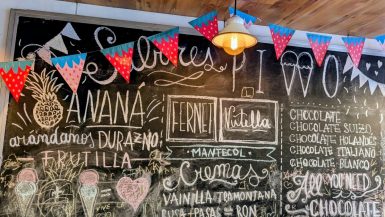 Sabores PIWO
ANANÁ
arándanos DURAZNO
FRUTILLA
FERNET Nutilla
MANTECOL
Cremas
VAINILLA TRAMONTANA
PASAS RON
CHOCOLATE
CHOCOLATE SUIZO
CHOCOLATE HOLANDES
CHOCOLATE AMARGO
CHOCOLATE BLANCO
All YOU NEED
CHOCOLATE